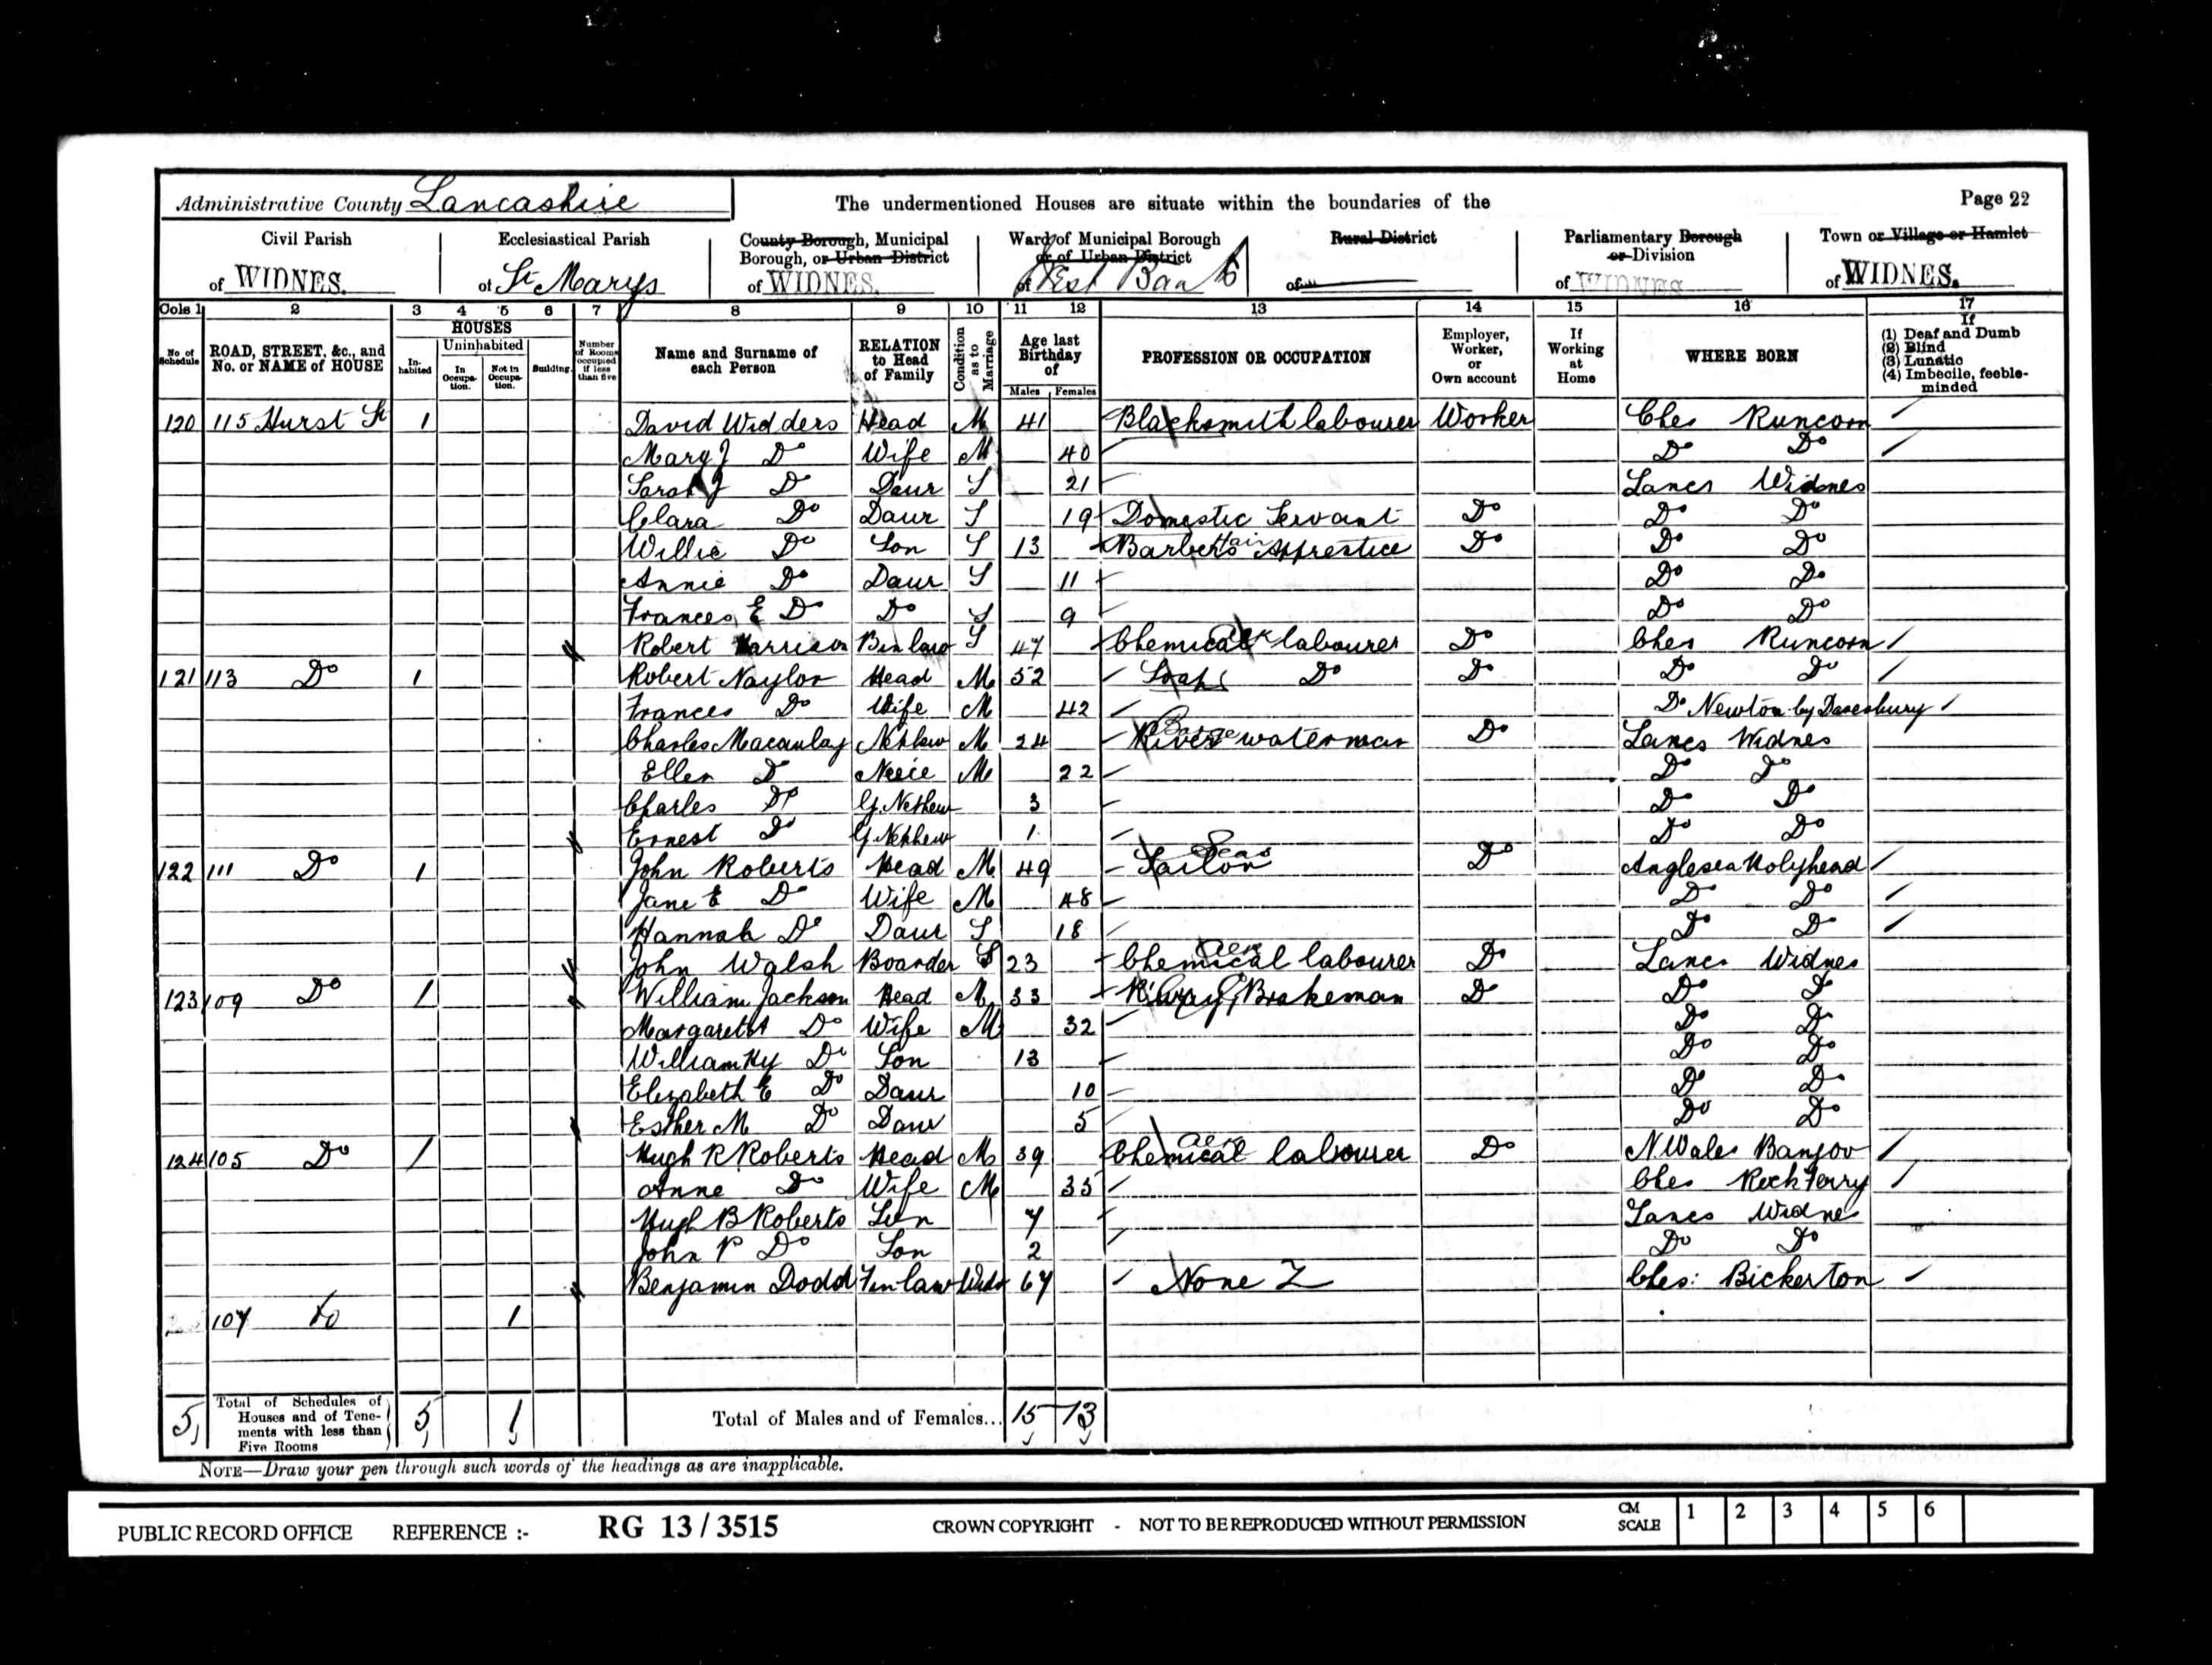 Administrative County Lancashire The undermentioned Houses are situate within the boundaries of the Page 22
Civil Parish Ecclesiastical Parish County Borough, Municipal Ward of Municipal Borough Rural District Parliamentary Borough Town or Village or Hamlet
Borough, or Urban District or of Urban District or Division
of WIDNES. of St Marys of WIDNES. of West Bank of of WIDNES of WIDNES.
Cols 1 2 3 4 5 6 7 8 9 10 11 12 13 14 15 16 17
No of Schedule ROAD, STREET, &c., and No. or NAME of HOUSE HOUSES In-habited Uninhabited In Occupa-tion. Not in Occupa-tion. Building. Number of Rooms occupied if less than five Name and Surname of each Person RELATION to Head of Family Condition as to Marriage Age last Birthday of Males Females PROFESSION OR OCCUPATION Employer, Worker, or Own account If Working at Home WHERE BORN If (1) Deaf and Dumb (2) Blind (3) Lunatic (4) Imbecile, feeble-minded
120 115 Hurst St 1 David Widders Head M 41 Blacksmith labourer Worker Ches Runcorn
Mary J Do Wife M 40 Do Do
Sarah J Do Daur S 21 Lancs Widnes
Clara Do Daur S 19 Domestic Servant Do Do Do
Willie Do Son S 13 Barbers Hair Apprentice Do Do Do
Annie Do Daur S 11 Do Do
Frances E Do Do S 9 Do Do
Robert Harrison B in law S 47 Chemical labourer Do Ches Runcorn
121 113 Do 1 Robert Naylor Head M 52 Soap Do Do Do Do
Frances Do Wife M 42 Do Newton by Daresbury
Charles Macaulay Nephew M 24 River Barge waterman Do Lancs Widnes
Ellen Do Neice M 22 Do Do
Charles Do G. Nephew 3 Do Do
Ernest Do G. Nephew 1 Do Do
122 111 Do 1 John Roberts Head M 49 Sailor Seas Do Anglesea Holyhead
Jane E Do Wife M 48 Do Do
Hannah Do Daur S 18 Do Do
John Walsh Boarder S 23 Chemical labourer Do Lancs Widnes
123 109 Do 1 William Jackson Head M 33 Brakeman Do Do Do
Margaret A Do Wife M 32 Do Do
William Hy Do Son 13 Do Do
Elizabeth E Do Daur 10 Do Do
Esther M Do Daur 5 Do Do
124 105 Do 1 Hugh R Roberts Head M 39 Chemical labourer Do N Wales Bangor
Anne Do Wife M 35 Ches Rock Ferry
Hugh B Roberts Son 7 Lancs Widnes
John P Do Son 2 Do Do
Benjamin Dodd F in law Widr 67 None Ches: Bickerton
107 Do 1
5 Total of Schedules of Houses and of Tene-ments with less than Five Rooms 5 1 Total of Males and of Females... 15 13
NOTE—Draw your pen through such words of the headings as are inapplicable.
PUBLIC RECORD OFFICE REFERENCE :- RG 13 / 3515 CROWN COPYRIGHT - NOT TO BE REPRODUCED WITHOUT PERMISSION CM SCALE 1 2 3 4 5 6